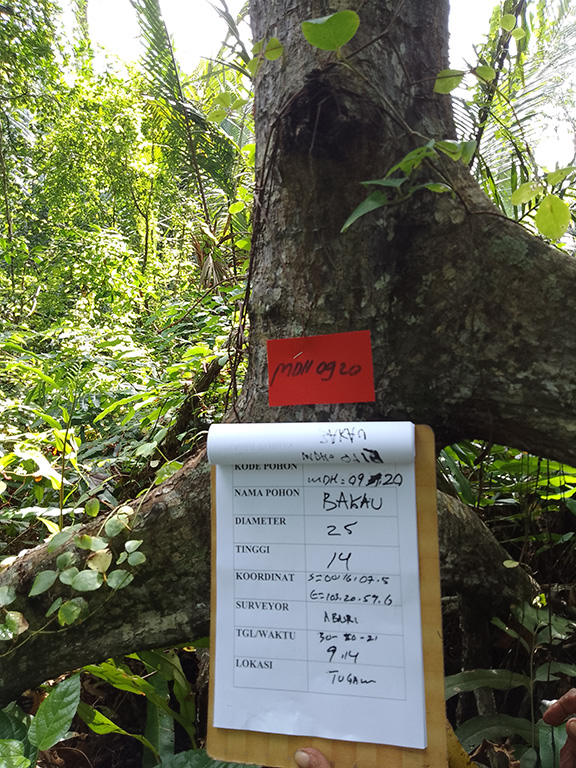 MDH 0920
BAKAU
KODE POHON MDH=09 20
NAMA POHON BAKAU
DIAMETER 25
TINGGI 14
KOORDINAT S=00.16.07.5
E=103.20.59.6
SURVEYOR ABURI
TGL/WAKTU 30-10-21
9.14
LOKASI TUGAM